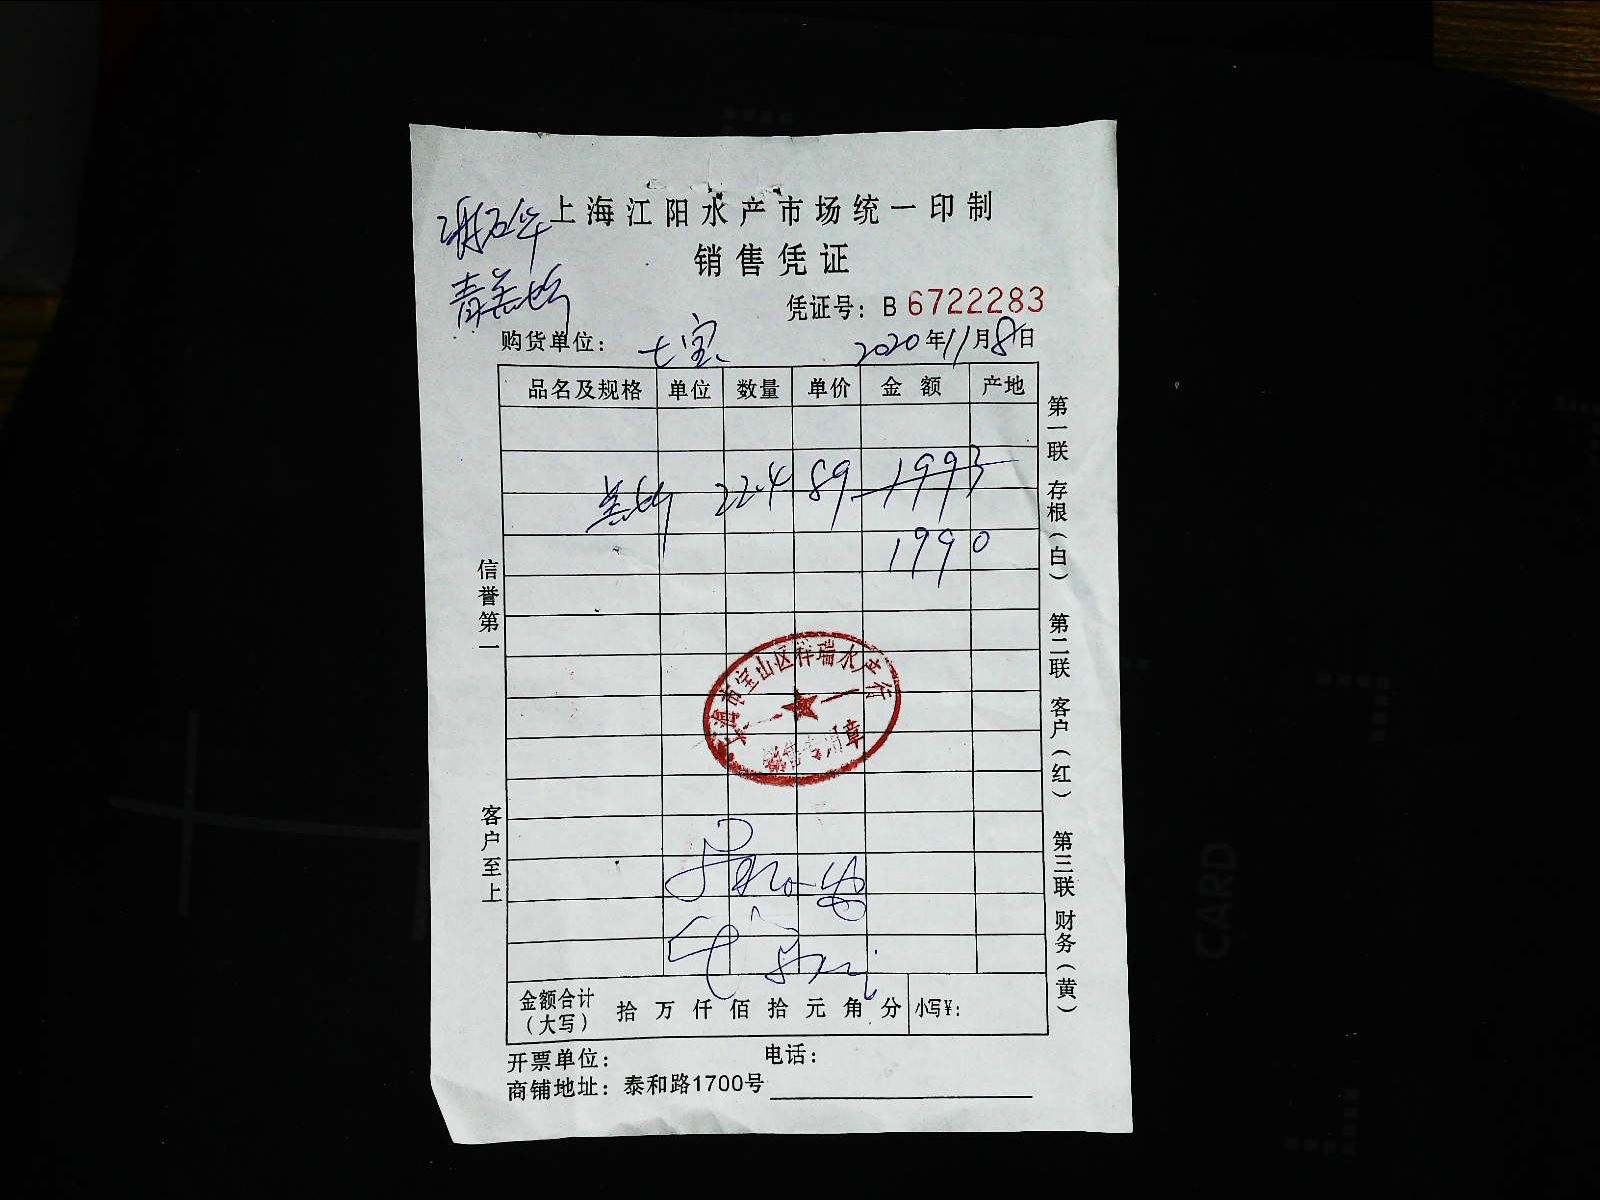 上海江阳水产市场统一印制
销售凭证
凭证号：B 6722283
购货单位：七宝
2020年11月8日
品名及规格 单位 数量 单价 金额 产地
22.4 89 1993
1990
信誉第一
客户至上
第一联 存根（白） 第二联 客户（红） 第三联 财务（黄）
上海市宝山区祥瑞水产行
销售专用章
金额合计（大写） 拾 万 仟 佰 拾 元 角 分 小写¥：
开票单位： 电话：
商铺地址：泰和路1700号